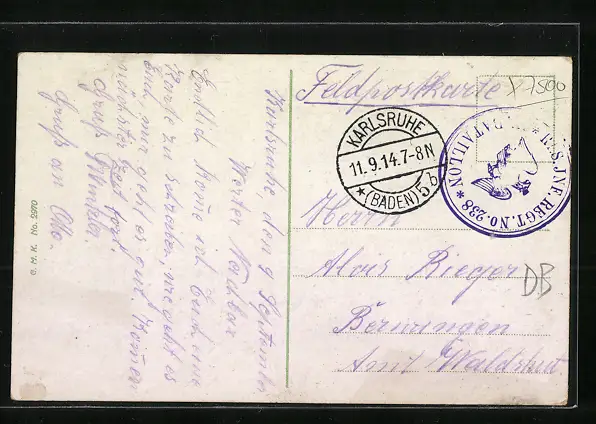 Feldpostkarte
17500
KARLSRUHE
11.9.14.7-8N
(BADEN) 5b
BATAILLON * RES. INF. REGT. No 238 *
Herrn
Alois Rieger
Amt Waldshut
DB
Karlsruhe den 9 September
Werter Nachbar
Endlich komme ich Euch eine
Karte zu schreiben, wie geht es
Euch, mir geht es gut. Komme
nächster Zeit fort
Gruß Winkler
Gruß an Otto.
C. M. K. No. 2970